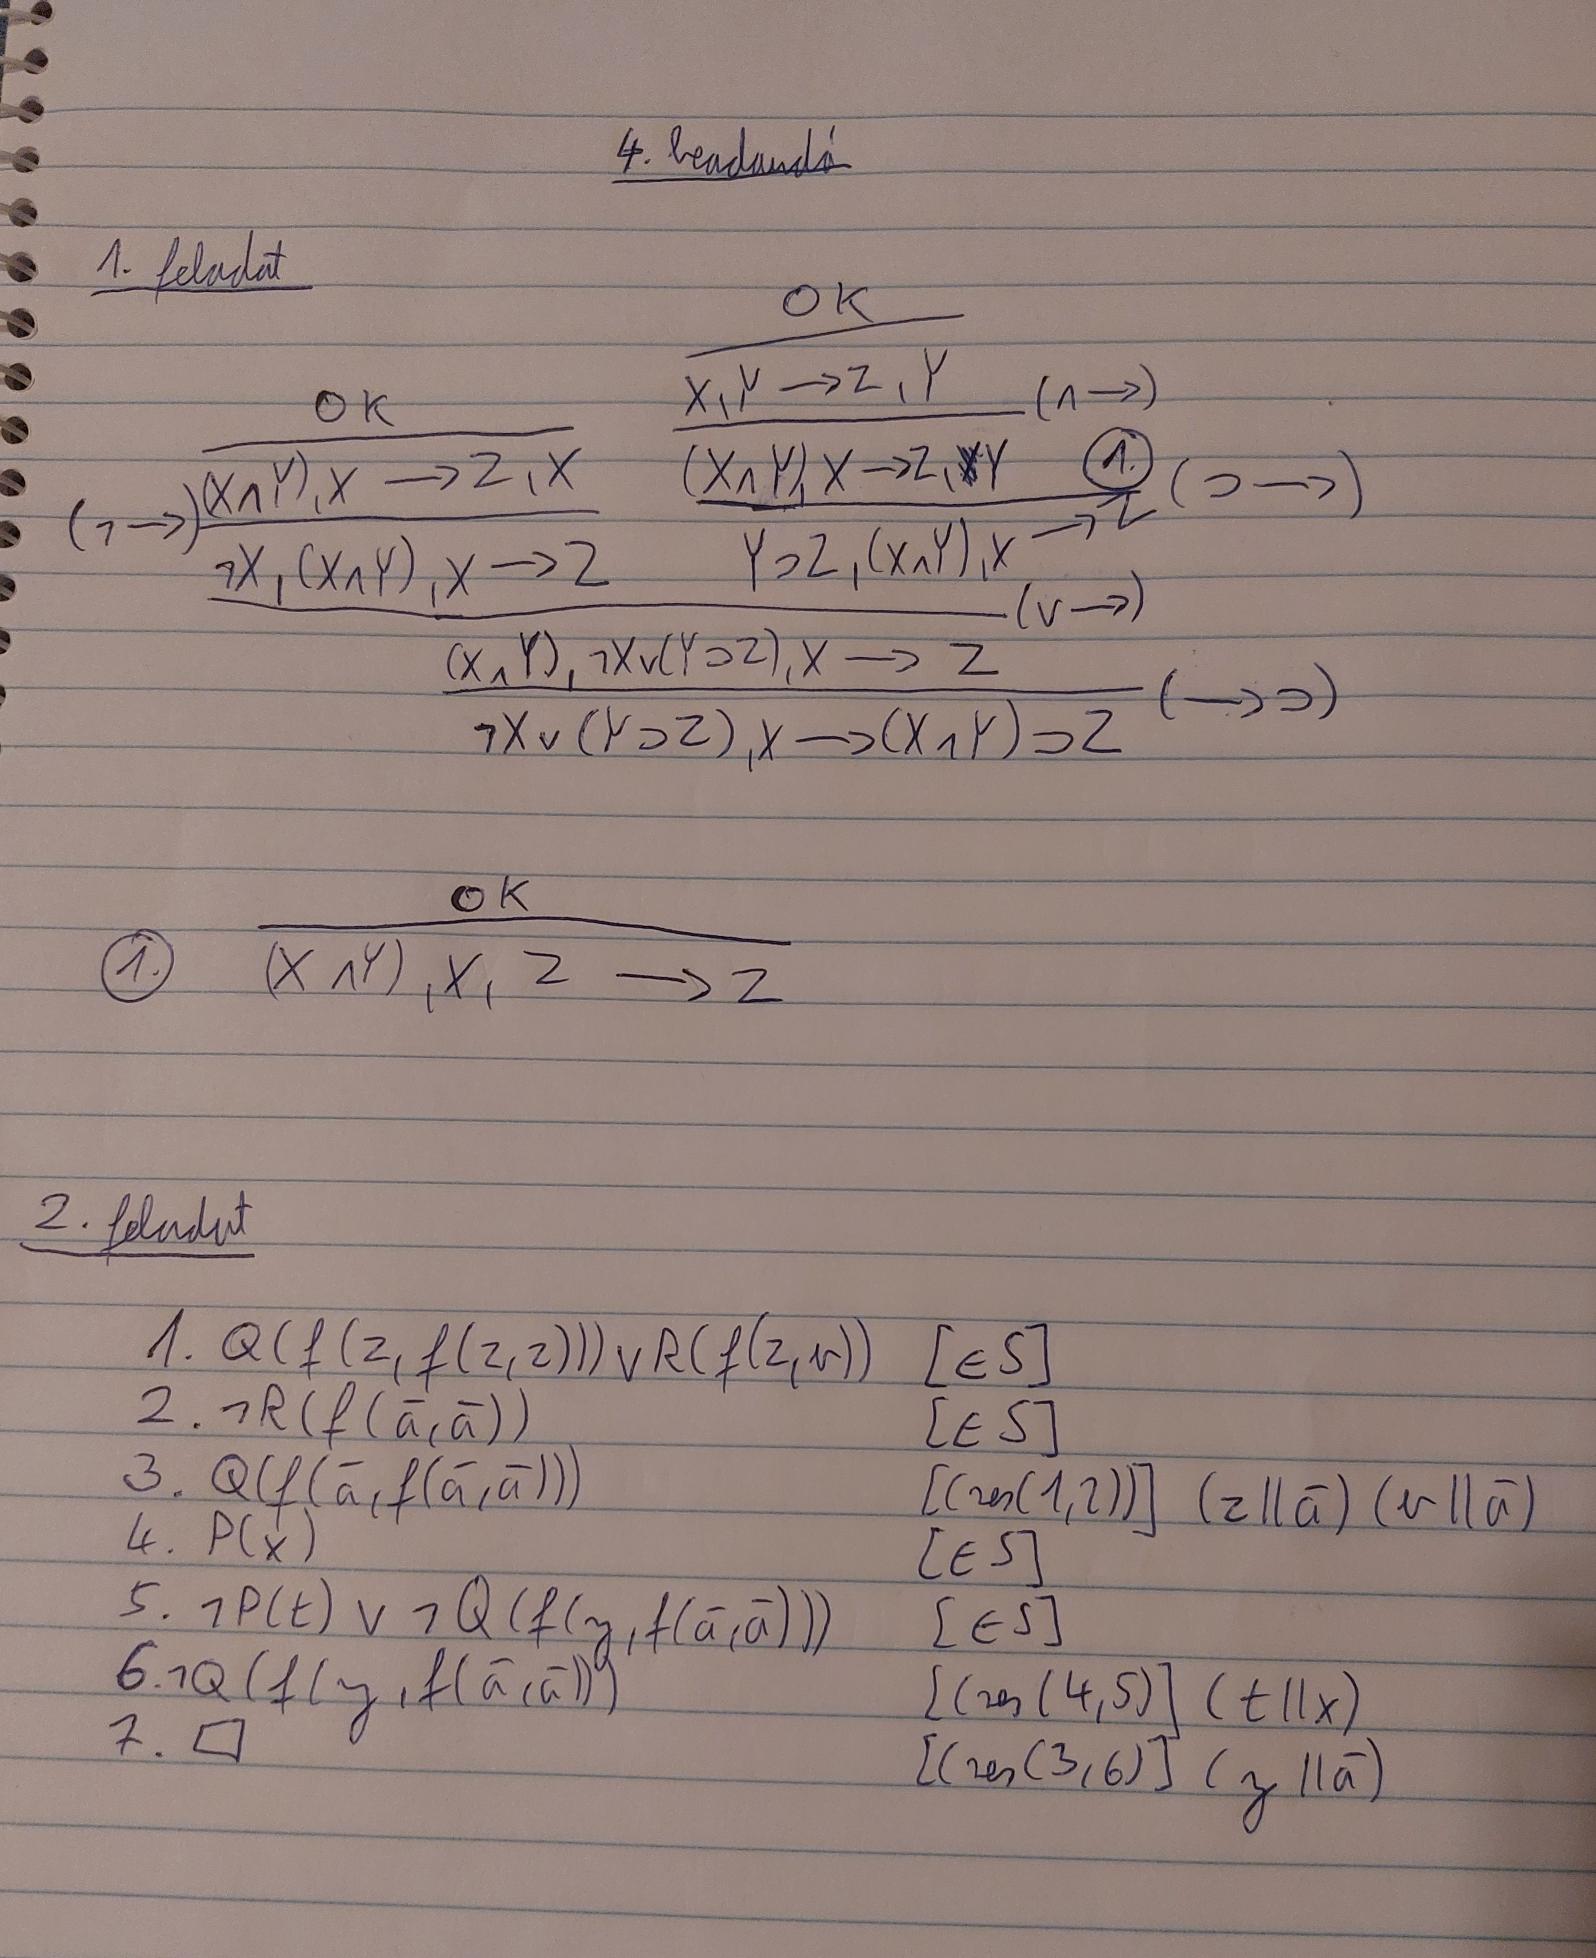 4. beadandó
1. feladat
OK
X, Y → Z, Y (∧→)
OK
(X∧Y), X → Z, X (X∧Y), X → Z, Y ①. (⊃→)
(¬→)
¬X, (X∧Y), X → Z Y⊃Z, (X∧Y), X → Z
(∨→)
(X∧Y), ¬X∨(Y⊃Z), X → Z
(→⊃)
¬X∨(Y⊃Z), X → (X∧Y)⊃Z
OK
①. (X∧Y), X, Z → Z
2. feladat
1. Q(f(z, f(z,z))) ∨ R(f(z,v)) [∈ S]
2. ¬R(f(ā, ā)) [∈ S]
3. Q(f(ā, f(ā, ā))) [(res(1,2))] (z||ā) (v||ā)
4. P(x) [∈ S]
5. ¬P(t) ∨ ¬Q(f(y, f(ā, ā))) [∈ S]
6. ¬Q(f(y, f(ā, ā))) [(res(4,5)] (t||x)
7. □ [(res(3,6)] (y||ā)